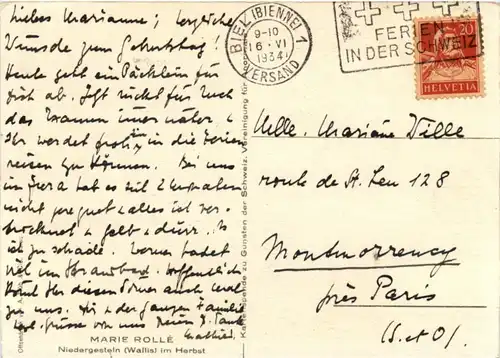 Liebes Marianne! Herzliche
Wünsche zum Geburtstag!
Heute geht ein Päcklein für
Dich ab. Jetzt rückt für Euch
das immer näher &
Ihr werdet froh in die Ferien
reisen zu können. Bei uns
im Jura hat es seit 2 Monaten
nicht geregnet & alles ist ver-
trocknet & gelb & dürr. Es
ist zu schade. Werner badet
viel im Strandbad. Hoffentlich
Ihr diesen Sommer auch
zu uns. Dir & der ganzen Familie
Grüsse von uns
MARIE ROLLÉ
Niedergesteln (Wallis) im Herbst
zu Gunsten der Schweiz. Vereinigung für
BIEL (BIENNE) 1
9-10
16. VI
1934
VERSAND
FERIEN
IN DER SCHWEIZ
20
HELVETIA
Melle. Mariane Wille
route de St. Leu 128
Montmorency
près Paris
(S. et O).